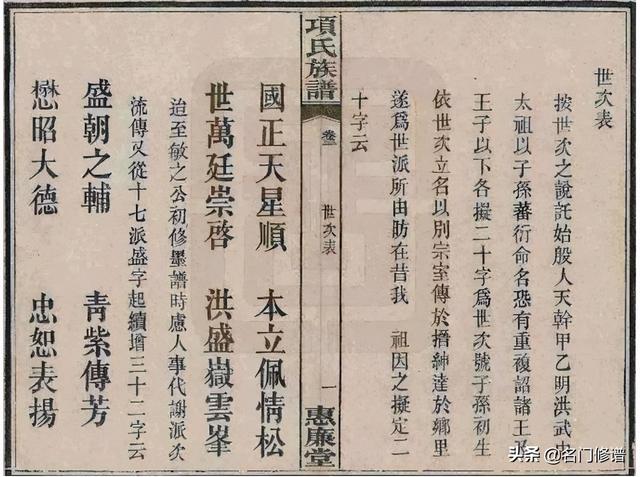 世次表
按世次之說託始殷人天幹甲乙明洪武中
太祖以子孫蕃衍命名恐有重複詔諸王
王子以下各擬二十字爲世次號子孫初生
依世次立名以別宗室傳於搢紳達於鄉里
遂爲世派所由昉在昔我 祖因之擬定二
十字云
項氏族譜 卷 世次表 一 惠廉堂
國正天星順 本立佩情松
世萬廷崇啓 洪盛嶽雲峯
迨至敏之公初修墨譜時慮人事代謝派次
流傳又從十七派盛字起續增三十二字云
盛朝之輔 青紫傳芳
懋昭大德 忠恕表揚
头条 @名门修谱